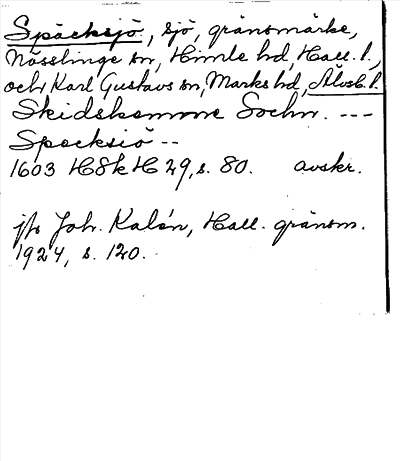 Späcksjö, sjö, gränsmärke,
Nösslinge sn, Himle hd, Hall. l.,
och Karl Gustavs sn, Marks hd, Älvsb. l.
Skidskamme Sochn. ---
Specksiö --
1603 H8kH29, s. 80. avskr.
jfr Joh. Kalén, Hall. gränsm.
1924, s. 120.